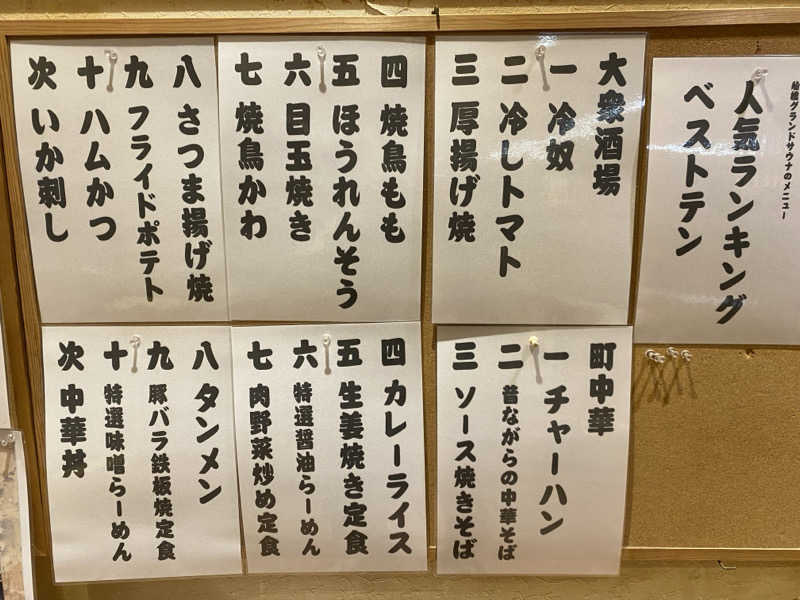 船橋グランドサウナのメニュー
人気ランキング
ベストテン
大衆酒場
一 冷奴
二 冷しトマト
三 厚揚げ焼
四 焼鳥もも
五 ほうれんそう
六 目玉焼き
七 焼鳥かわ
八 さつま揚げ焼
九 フライドポテト
十 ハムかつ
次 いか刺し
町中華
一 チャーハン
二 昔ながらの中華そば
三 ソース焼きそば
四 カレーライス
五 生姜焼き定食
六 特選醤油らーめん
七 肉野菜炒め定食
八 タンメン
九 豚バラ鉄板焼定食
十 特選味噌らーめん
次 中華丼